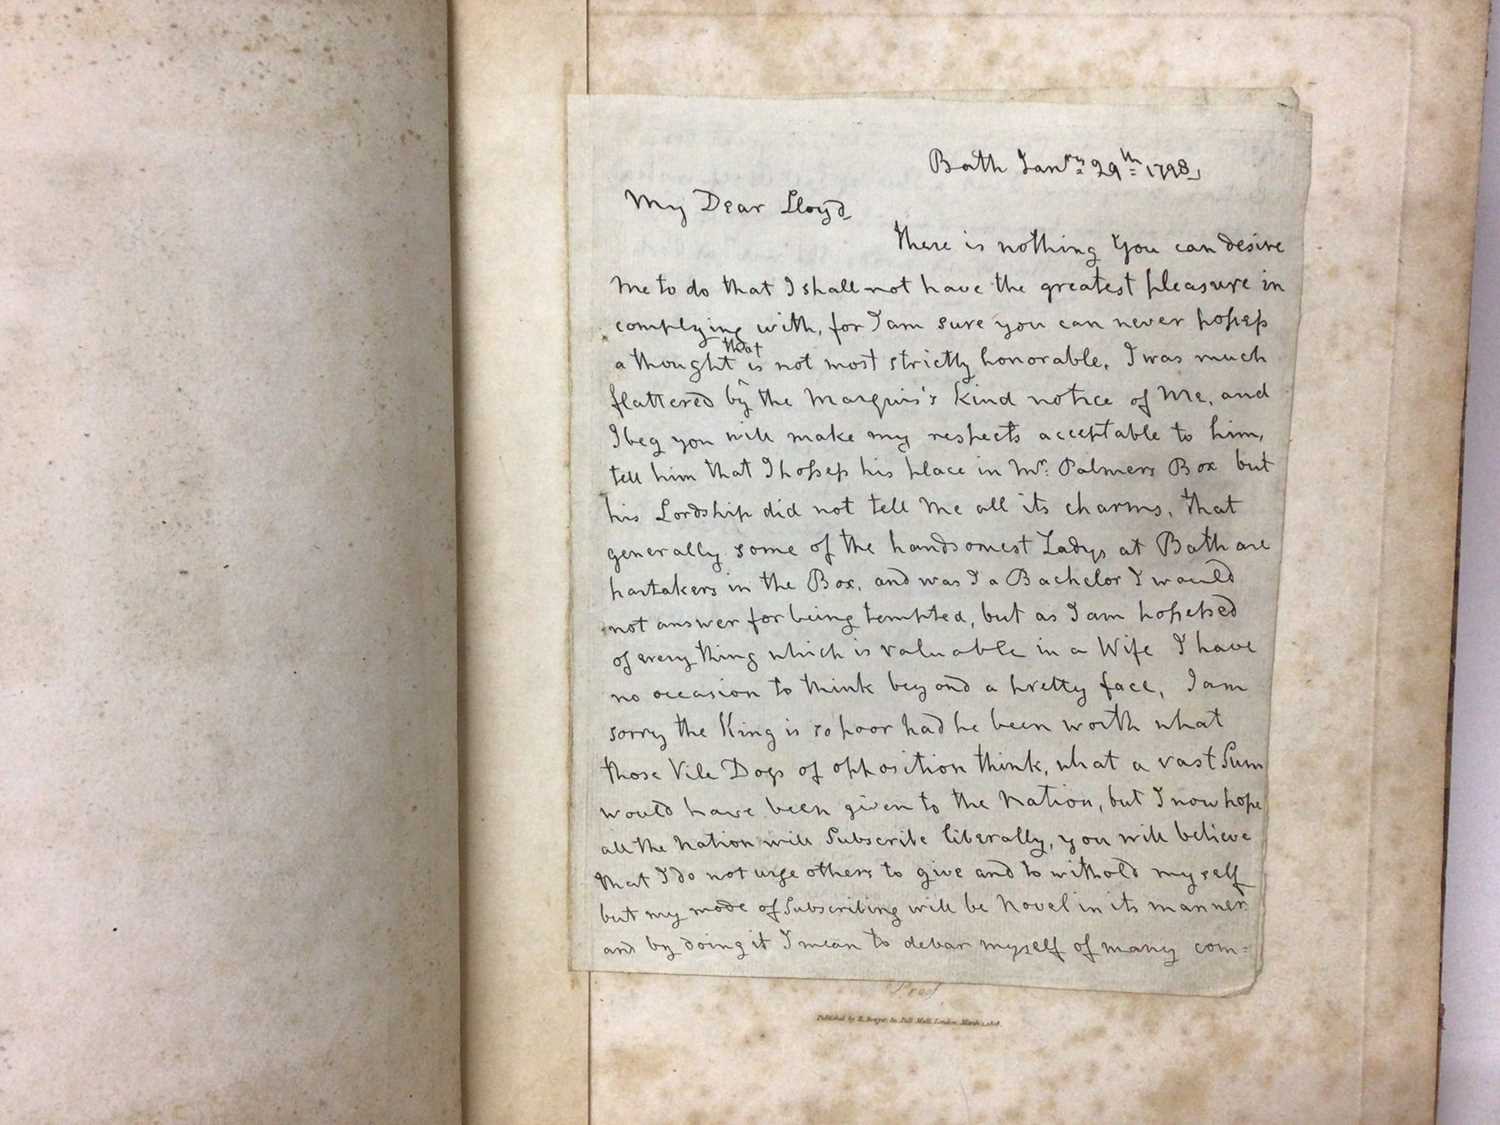 Bath Jan.ry 29th 1798,
My Dear Lloyd
There is nothing You can desire
Me to do that I shall not have the greatest pleasure in
complying with, for I am sure you can never possess
that
a thought ^ is not most strictly honorable, I was much
flattered by the Marquis's kind notice of Me, and
I beg you will make my respects acceptable to him,
tell him that I possess his place in Mr. Palmers Box but
his Lordship did not tell me all its charms, that
generally some of the handsomest Ladys at Bath are
partakers in the Box, and was I a Bachelor I would
not answer for being tempted, but as I am possessed
of every thing which is valuable in a Wife I have
no occasion to think beyond a pretty face, I am
sorry the King is so poor had he been worth what
those Vile Dogs of opposition think, what a vast Sum
would have been given to the Nation, but I now hope
all the Nation will Subscribe liberally, you will believe
that I do not urge others to give and to withold myself
but my mode of Subscribing will be Novel in its manner
and by doing it I mean to debar myself of many com=
Proof
Published by R. Bowyer, 80, Pall Mall, London, March